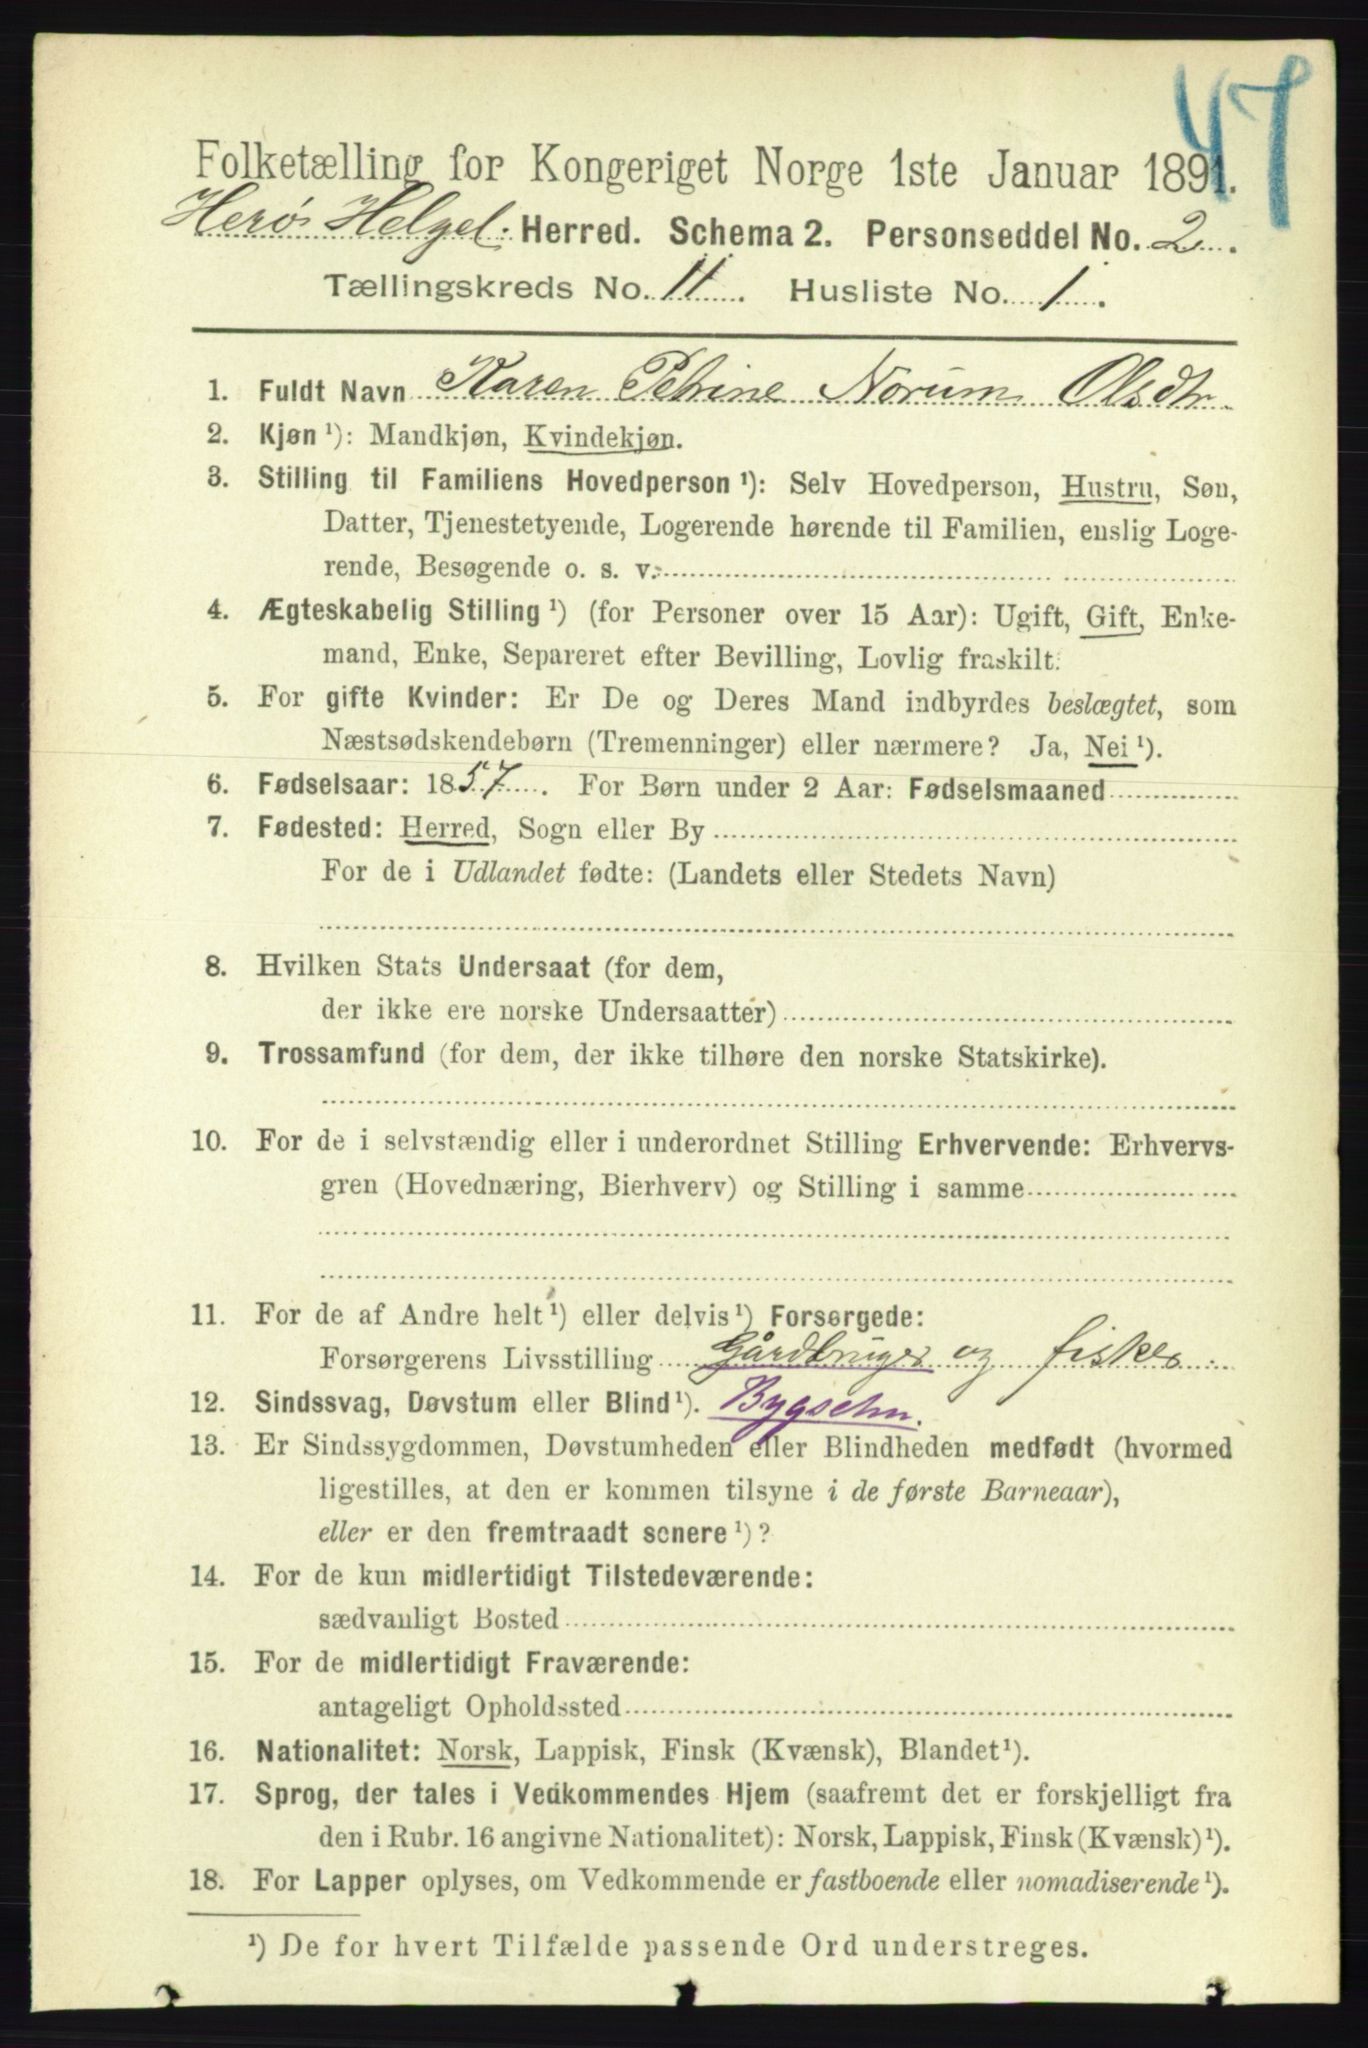 47
Folketælling for Kongeriget Norge 1ste Januar 1891.
Herø Helgel. Herred. Schema 2. Personseddel No. 2.
Tællingskreds No. 11. Husliste No. 1.
1. Fuldt Navn Karen Petrine Norum Olsdtr
2. Kjøn ¹): Mandkjøn, Kvindekjøn.
3. Stilling til Familiens Hovedperson ¹): Selv Hovedperson, Hustru, Søn,
Datter, Tjenestetyende, Logerende hørende til Familien, enslig Loge-
rende, Besøgende o. s. v.
4. Ægteskabelig Stilling ¹) (for Personer over 15 Aar): Ugift, Gift, Enke-
mand, Enke, Separeret efter Bevilling, Lovlig fraskilt.
5. For gifte Kvinder: Er De og Deres Mand indbyrdes beslægtet, som
Næstsødskendebørn (Tremenninger) eller nærmere? Ja, Nei ¹).
6. Fødselsaar: 1857. For Børn under 2 Aar: Fødselsmaaned
7. Fødested: Herred, Sogn eller By
For de i Udlandet fødte: (Landets eller Stedets Navn)
8. Hvilken Stats Undersaat (for dem,
der ikke ere norske Undersaatter)
9. Trossamfund (for dem, der ikke tilhøre den norske Statskirke).
10. For de i selvstændig eller i underordnet Stilling Erhvervende: Erhvervs-
gren (Hovednæring, Bierhverv) og Stilling i samme
11. For de af Andre helt ¹) eller delvis ¹) Forsørgede:
Forsørgerens Livsstilling Gårdbruger og fisker.
12. Sindssvag, Døvstum eller Blind ¹). Bygselm.
13. Er Sindssygdommen, Døvstumheden eller Blindheden medfødt (hvormed
ligestilles, at den er kommen tilsyne i de første Barneaar),
eller er den fremtraadt senere ¹)?
14. For de kun midlertidigt Tilstedeværende:
sædvanligt Bosted
15. For de midlertidigt Fraværende:
antageligt Opholdssted
16. Nationalitet: Norsk, Lappisk, Finsk (Kvænsk), Blandet ¹).
17. Sprog, der tales i Vedkommendes Hjem (saafremt det er forskjelligt fra
den i Rubr. 16 angivne Nationalitet): Norsk, Lappisk, Finsk (Kvænsk) ¹).
18. For Lapper oplyses, om Vedkommende er fastboende eller nomadiserende ¹).
¹) De for hvert Tilfælde passende Ord understreges.